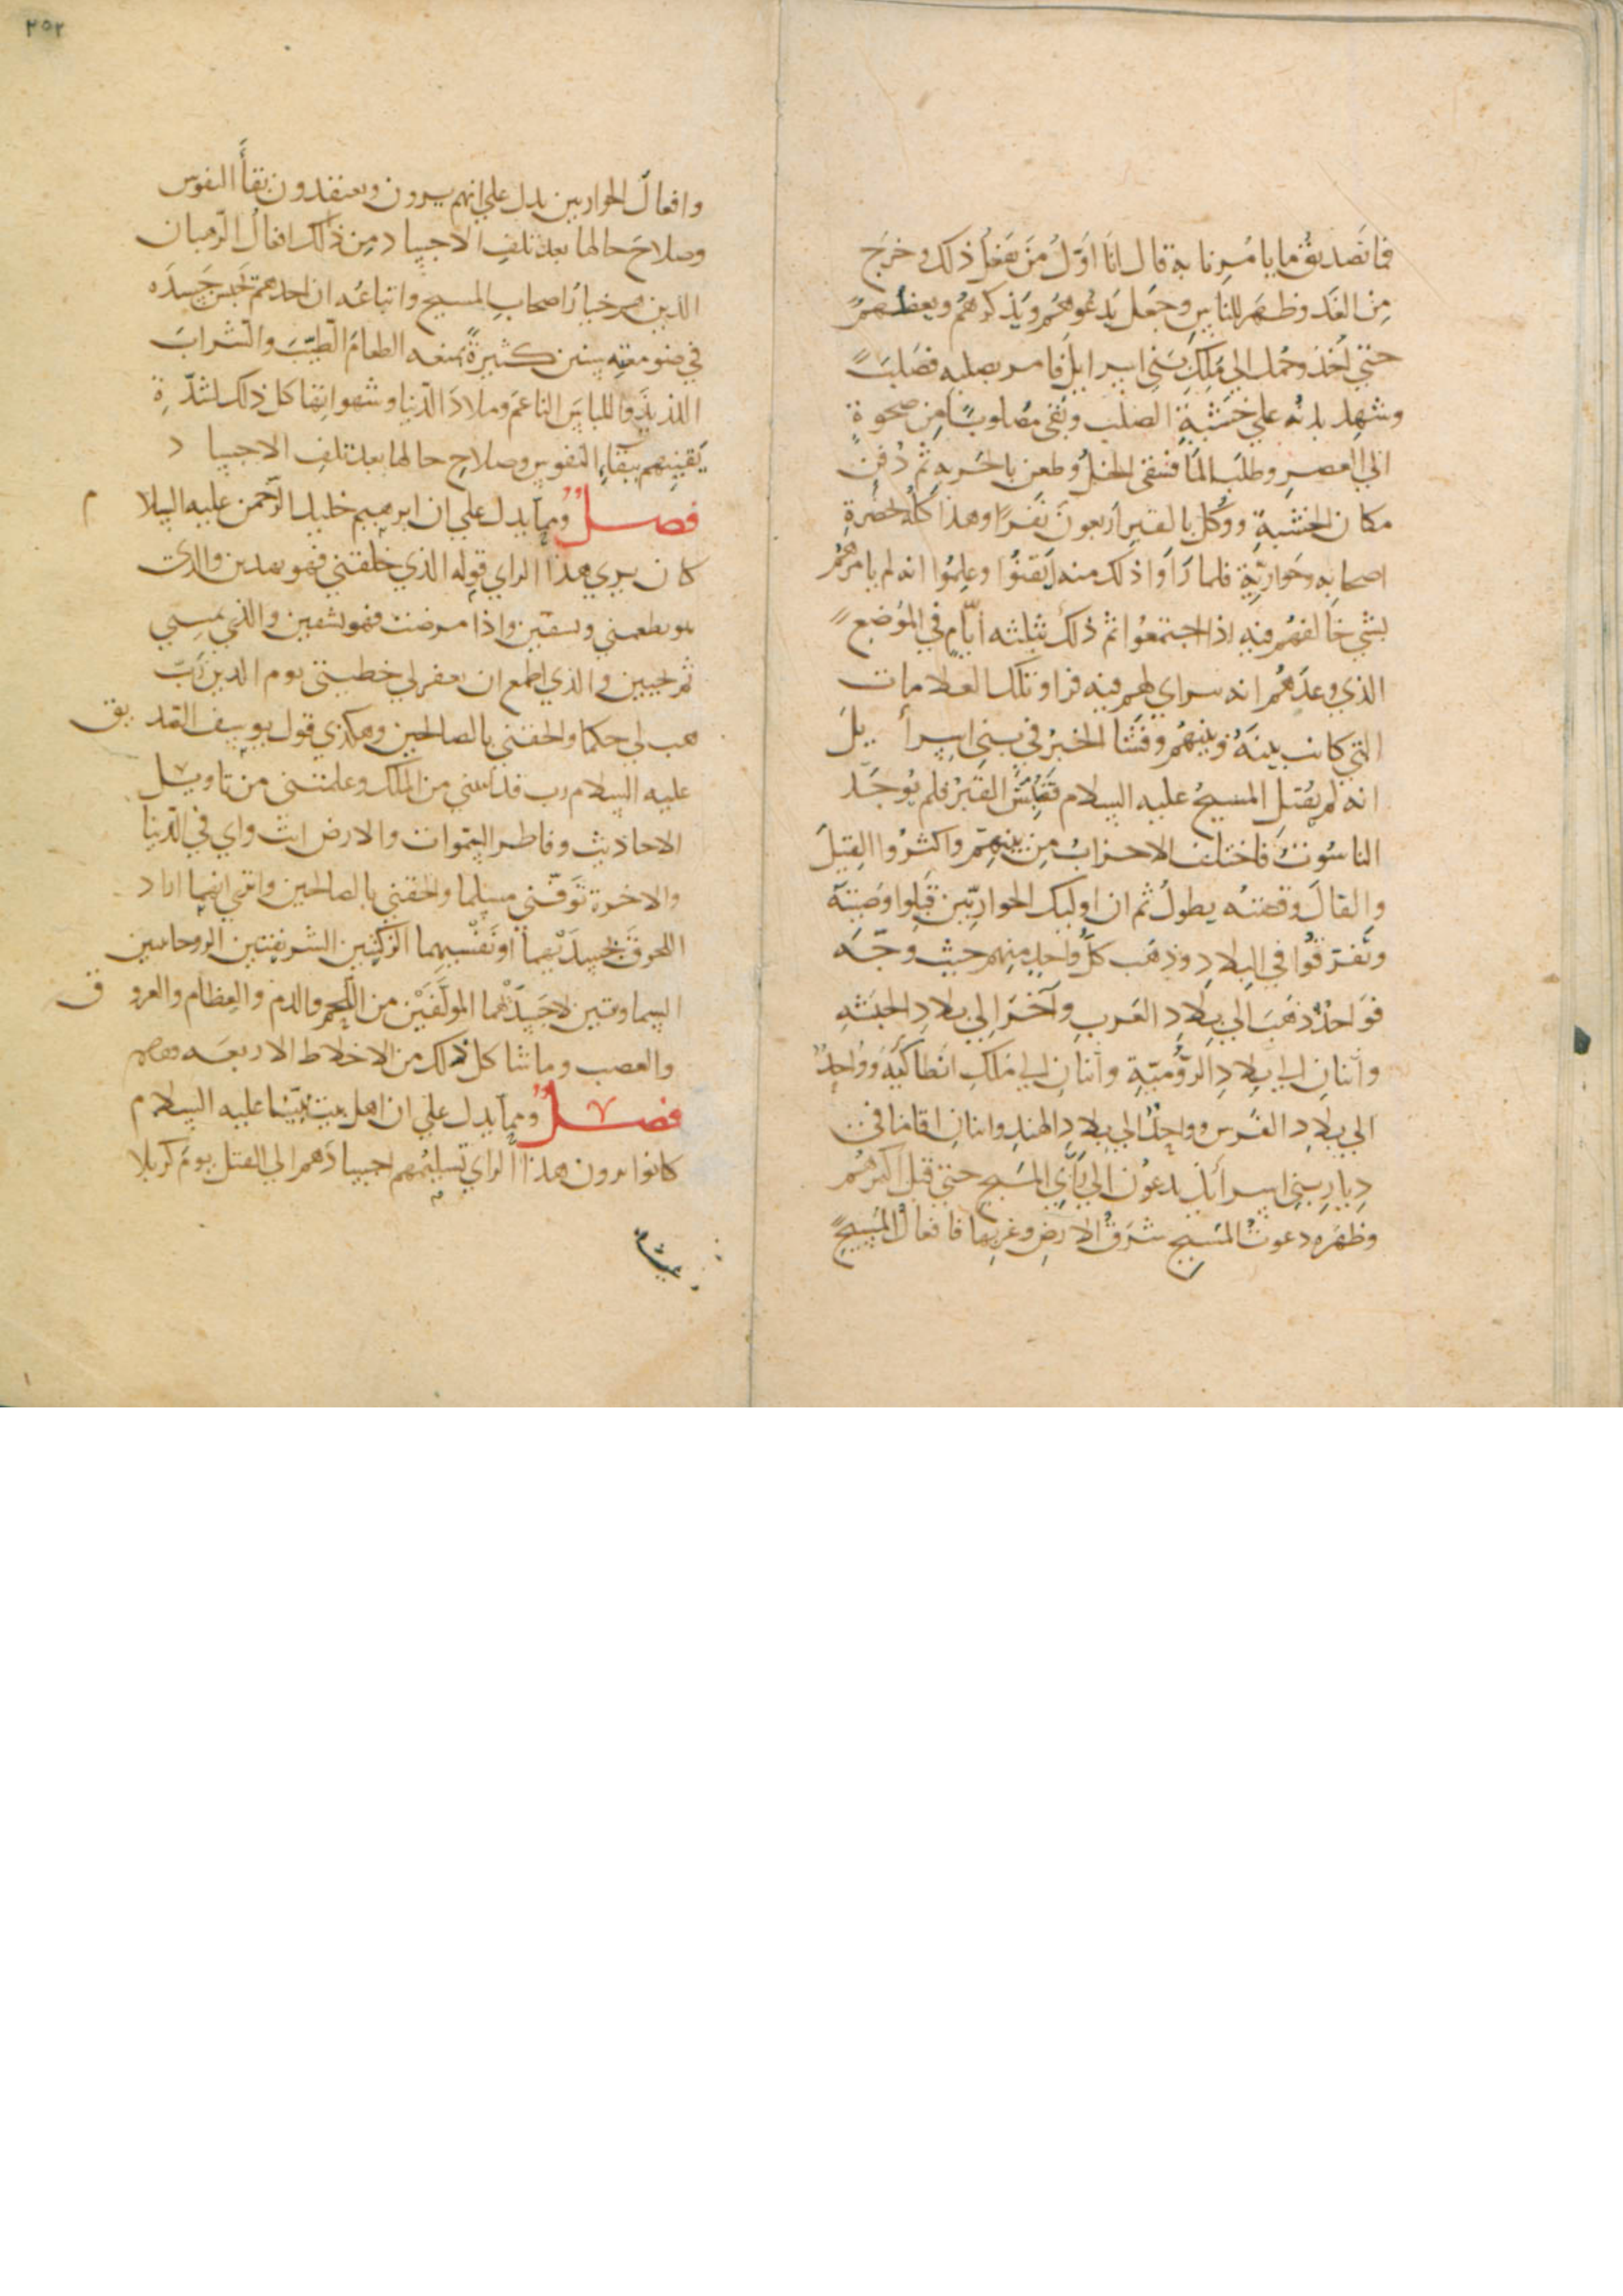 فما تَصديقُ ما يامُرنا به قال انا اوّلُ مَن يَفعلُ ذلك وخرَج
مِن الغَد وظهَر للناسِ وجَعل يَدعُوهُم ويَذكرهُم ويعظهُم
حتي اُخذ وحُمل الي مَلِك بَني اسرايل فامر بصلبه فصُلبَ
وشهد بدنه علي خَشَبةِ الصَلب وبَقي مَصلوبًا مِن صحوةِ
الي العصرِ وطلبَ المَا فسُقي الخلّ وطعن بالحَربه ثم دُفن
مكان الخشبةِ ووُكّل بالقبرِ اربعونَ نَفَرًا وهذا كلّه بحَضرةِ
اصحابه وحَوارِيّه فلما رَاَوا ذلك منه اَيقنُوا وعلمُوا انه لم يامرهُم
بشي خالفهُم فيه اذا اجتمعُوا ثم ذلك بثلثه ايّام في المَوضع
الذي وعدَهُم انه سراي لهم فيه فراوا تلك العلامات
التي كانت بينهُ وبينهُم وفَشَا الخبرُ في بني اسِرأ يلَ
انه لم يُقتل المسيحُ عليه السلام فنُبِشَ القَبرُ فلم يُوجَد
الناسُوتُ فاختلف الاحزابُ مِن بينهِم واكثرُوا القِيلَ
والقالَ وقصّتُه يطولُ ثم ان اوليك الحواريّين قبِلوا وصَيتَه
وتفرقُوا في البلادِ وذهَب كلُّ واحدٍ منهم حيث وجّه
فوَاحدٌ ذهَبَ الي بلادِ الغَربِ وآخَر الي بلادِ الحبَشه
واثنانِ الي بلادِ الرُّوميّةِ واثنانِ الي مَلكِ انطاكيَه ووَاحدٌ
الي بلادِ الفُرس وواحدٌ الي بلادِ الهندِ واثنانِ اقاما في
دِيارِ بني اسرأيل يدعُون الي رَاي المَسيحِ حتي قتل اكثرهُم
وظهَرَه دعوتُ المَسيحِ شَرقَ الارضِ وغربها فافعالُ المَسيحِ
وافعالُ الحواريين يدل علي انهم يرون ويعتقدون بقأ النفوس
وصلاحَ حالها بعد تلفِ الاجساد ومِن ذلك افعالُ الرهبان
الذين هم خيارُ اصحابِ المسيح واتباعُه ان احدهم يَحبسُ جَسدَه
في صَومعته سنين كثيرةً يمنعه الطعامَ الطيّبَ والشرابَ
اللذيذَ واللباسَ الناعمَ وملاذَ الدّنيا وشهواتها كل ذلك لشدّ ةِ
يَقينِهم ببقاءِ النفوسِ وصلاحِ حالها بعد تلفِ الاجسا د
فصلٌ ومما يدل علي ان ابرهيم خليل الرَّحمن عليه السلا م
كان يري هذا الراي قوله الذي خلقني فهو يهدين والذي
هو يطعمني ويسقين واذا مرضت فهو يشفين والذي يميتني
ثم يحيين والذي اطمع ان يغفر لي خطيتي يوم الدين رَبّ
هب لي حكما والحقني بالصالحين وهكذي قول يوسف الصد يق
عليه السلام رب قد اتيتني من الملك وعلمتني من تاويل
الاحاديث وفاطر السّموات والارض انت وليّ في الدّنيا
والاخرة تَوفّني مسلما والحقني بالصالحين وانتي انهما اراد
اللحوقَ بجسدَيهما او نَفسيهما الزكيتين الشريفتين الروحانيين
السماويتين لاجسَدَهُما المولّفَيْن من اللّحم والدم والعِظام والعرو ق
والعصب وماشا كل ذلك من الاخلاط الاربعه
فصلٌ ومما يدل علي ان اهل بيت نبيّنا عليه السلام
كانوا يرون هذا الراي تسليمُهم اجسادَهم الي القتل يومَ كربلا
٢٥٢